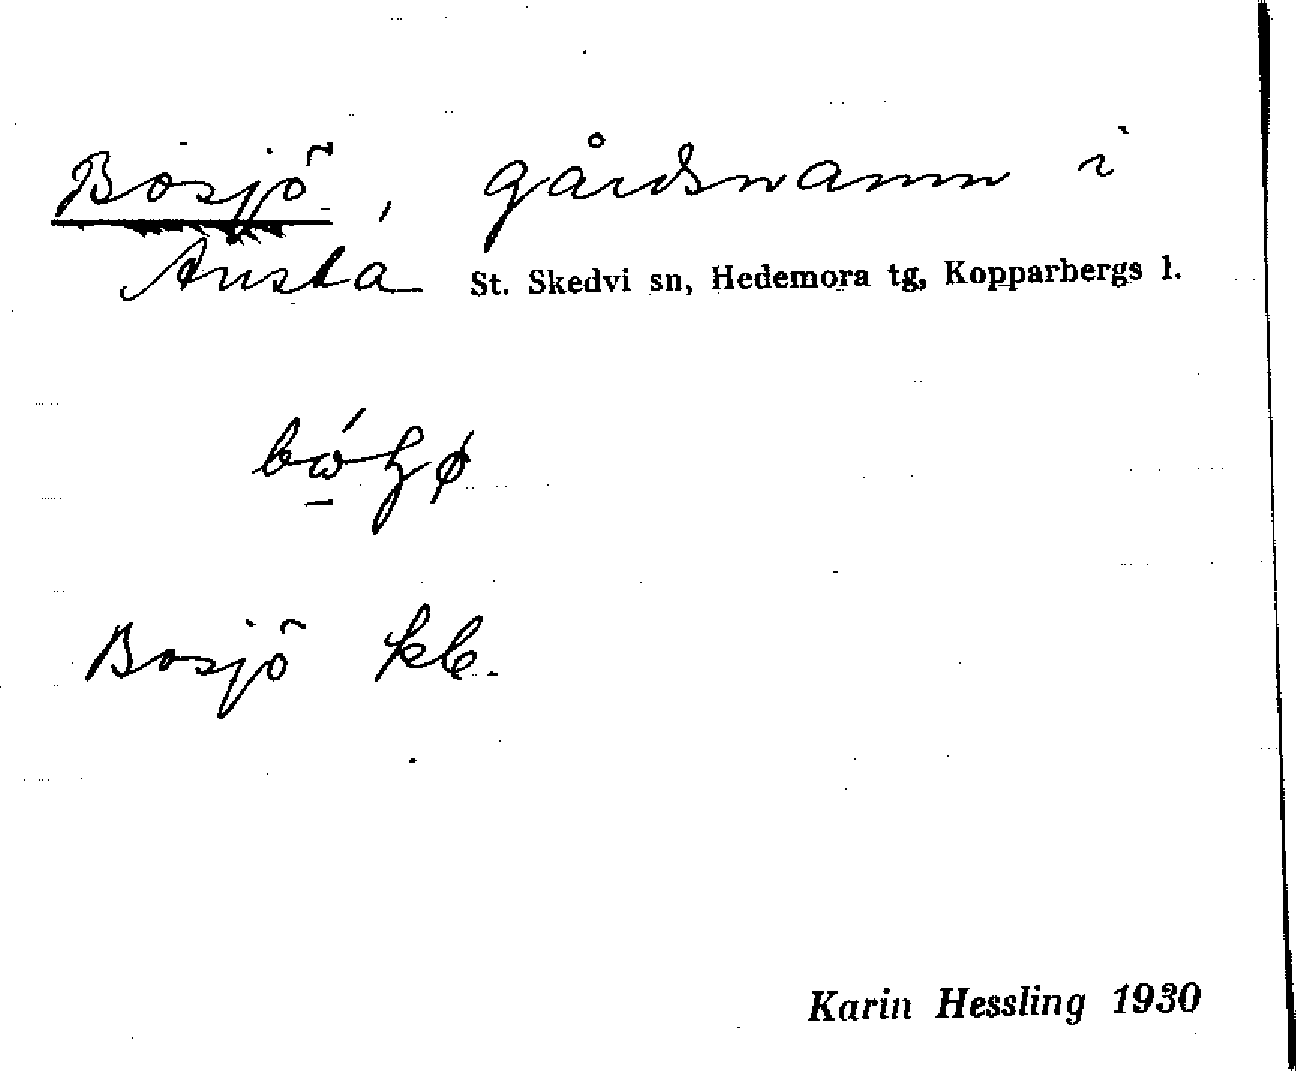 Bosjö, gårdsnamn i
Ansta St. Skedvi sn, Hedemora tg, Kopparbergs l.
Bosjö kb.
Karin Hessling 1930